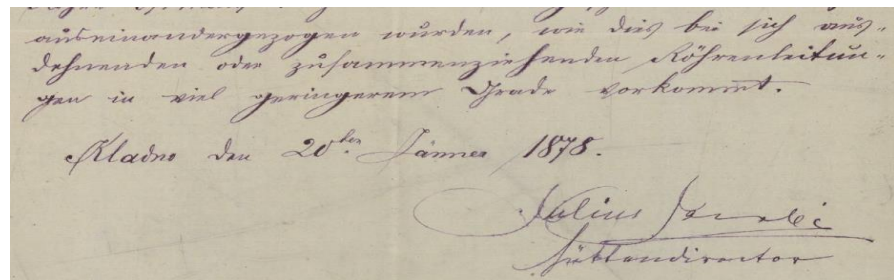 auseinandergezogen wurden, wie dies bei sich aus-
dehnenden oder zusammenziehenden Röhrenleitun-
gen in viel geringerem Grade vorkommt.
Kladno den 20ten Jänner 1878.
Julius Jacobi
Hüttendirector